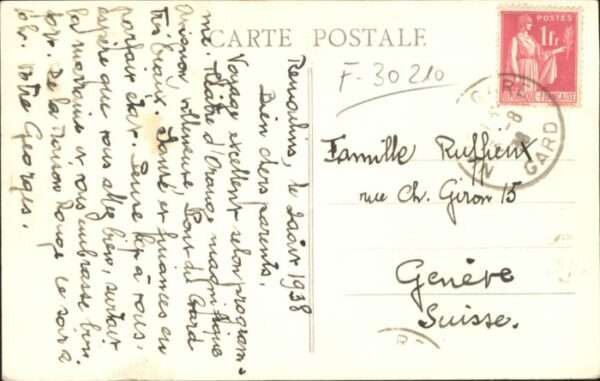 CARTE POSTALE
POSTES
1Fr
F-30210
GARD
Remoulins, le 2 août 1938
Bien chers parents,
Voyage excellent selon program-
me. Théâtre d'Orange magnifique
Avignon, Villeneuve, Pont du Gard
très beaux. Santé et finances en
parfait état. Pense bcp à vous,
espère que vous allez bien, surtout
la marraine et vous embrasse bien
fort. De la Maison Rouge ce soir à
Votre Georges.
Famille Ruffieux
rue Ch. Giron 15
Genève
Suisse.